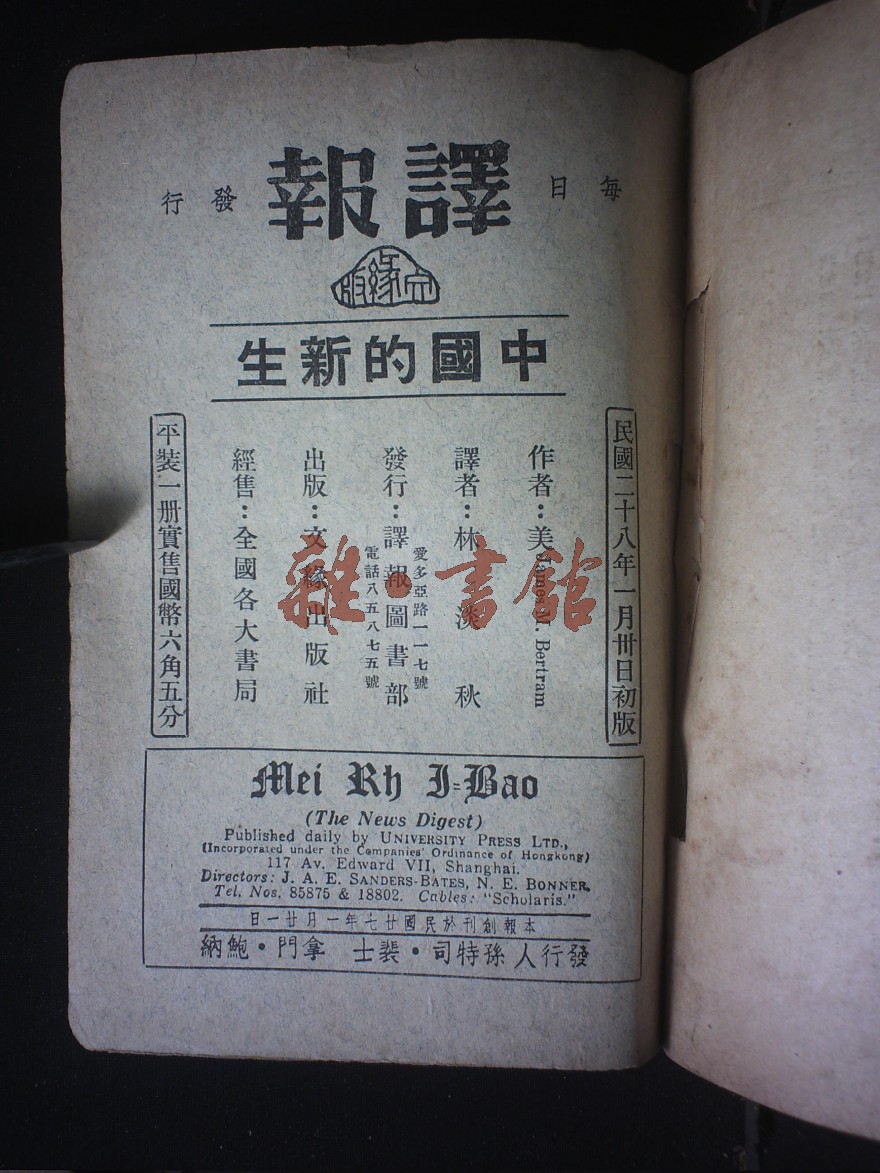 每日譯報發行
文緣版
中國的新生
民國二十八年一月卅日初版
作者：美James M. Bertram
譯者：林淡秋
愛多亞路一一七號
發行：譯報圖書部
電話八五八七五號
出版：文緣出版社
經售：全國各大書局
平裝一册實售國幣六角五分
雜·書館
Mei Rh I=Bao
(The News Digest)
Published daily by UNIVERSITY PRESS LTD.,
(Incorporated under the Companies' Ordinance of Hongkong)
117 Av. Edward VII, Shanghai.
Directors: J. A. E. SANDERS-BATES, N. E. BONNER.
Tel. Nos. 85875 & 18802. Cables: "Scholaris."
本報創刊於民國廿七年一月廿一日
發行人 孫特司·裴士 拿門·鮑納